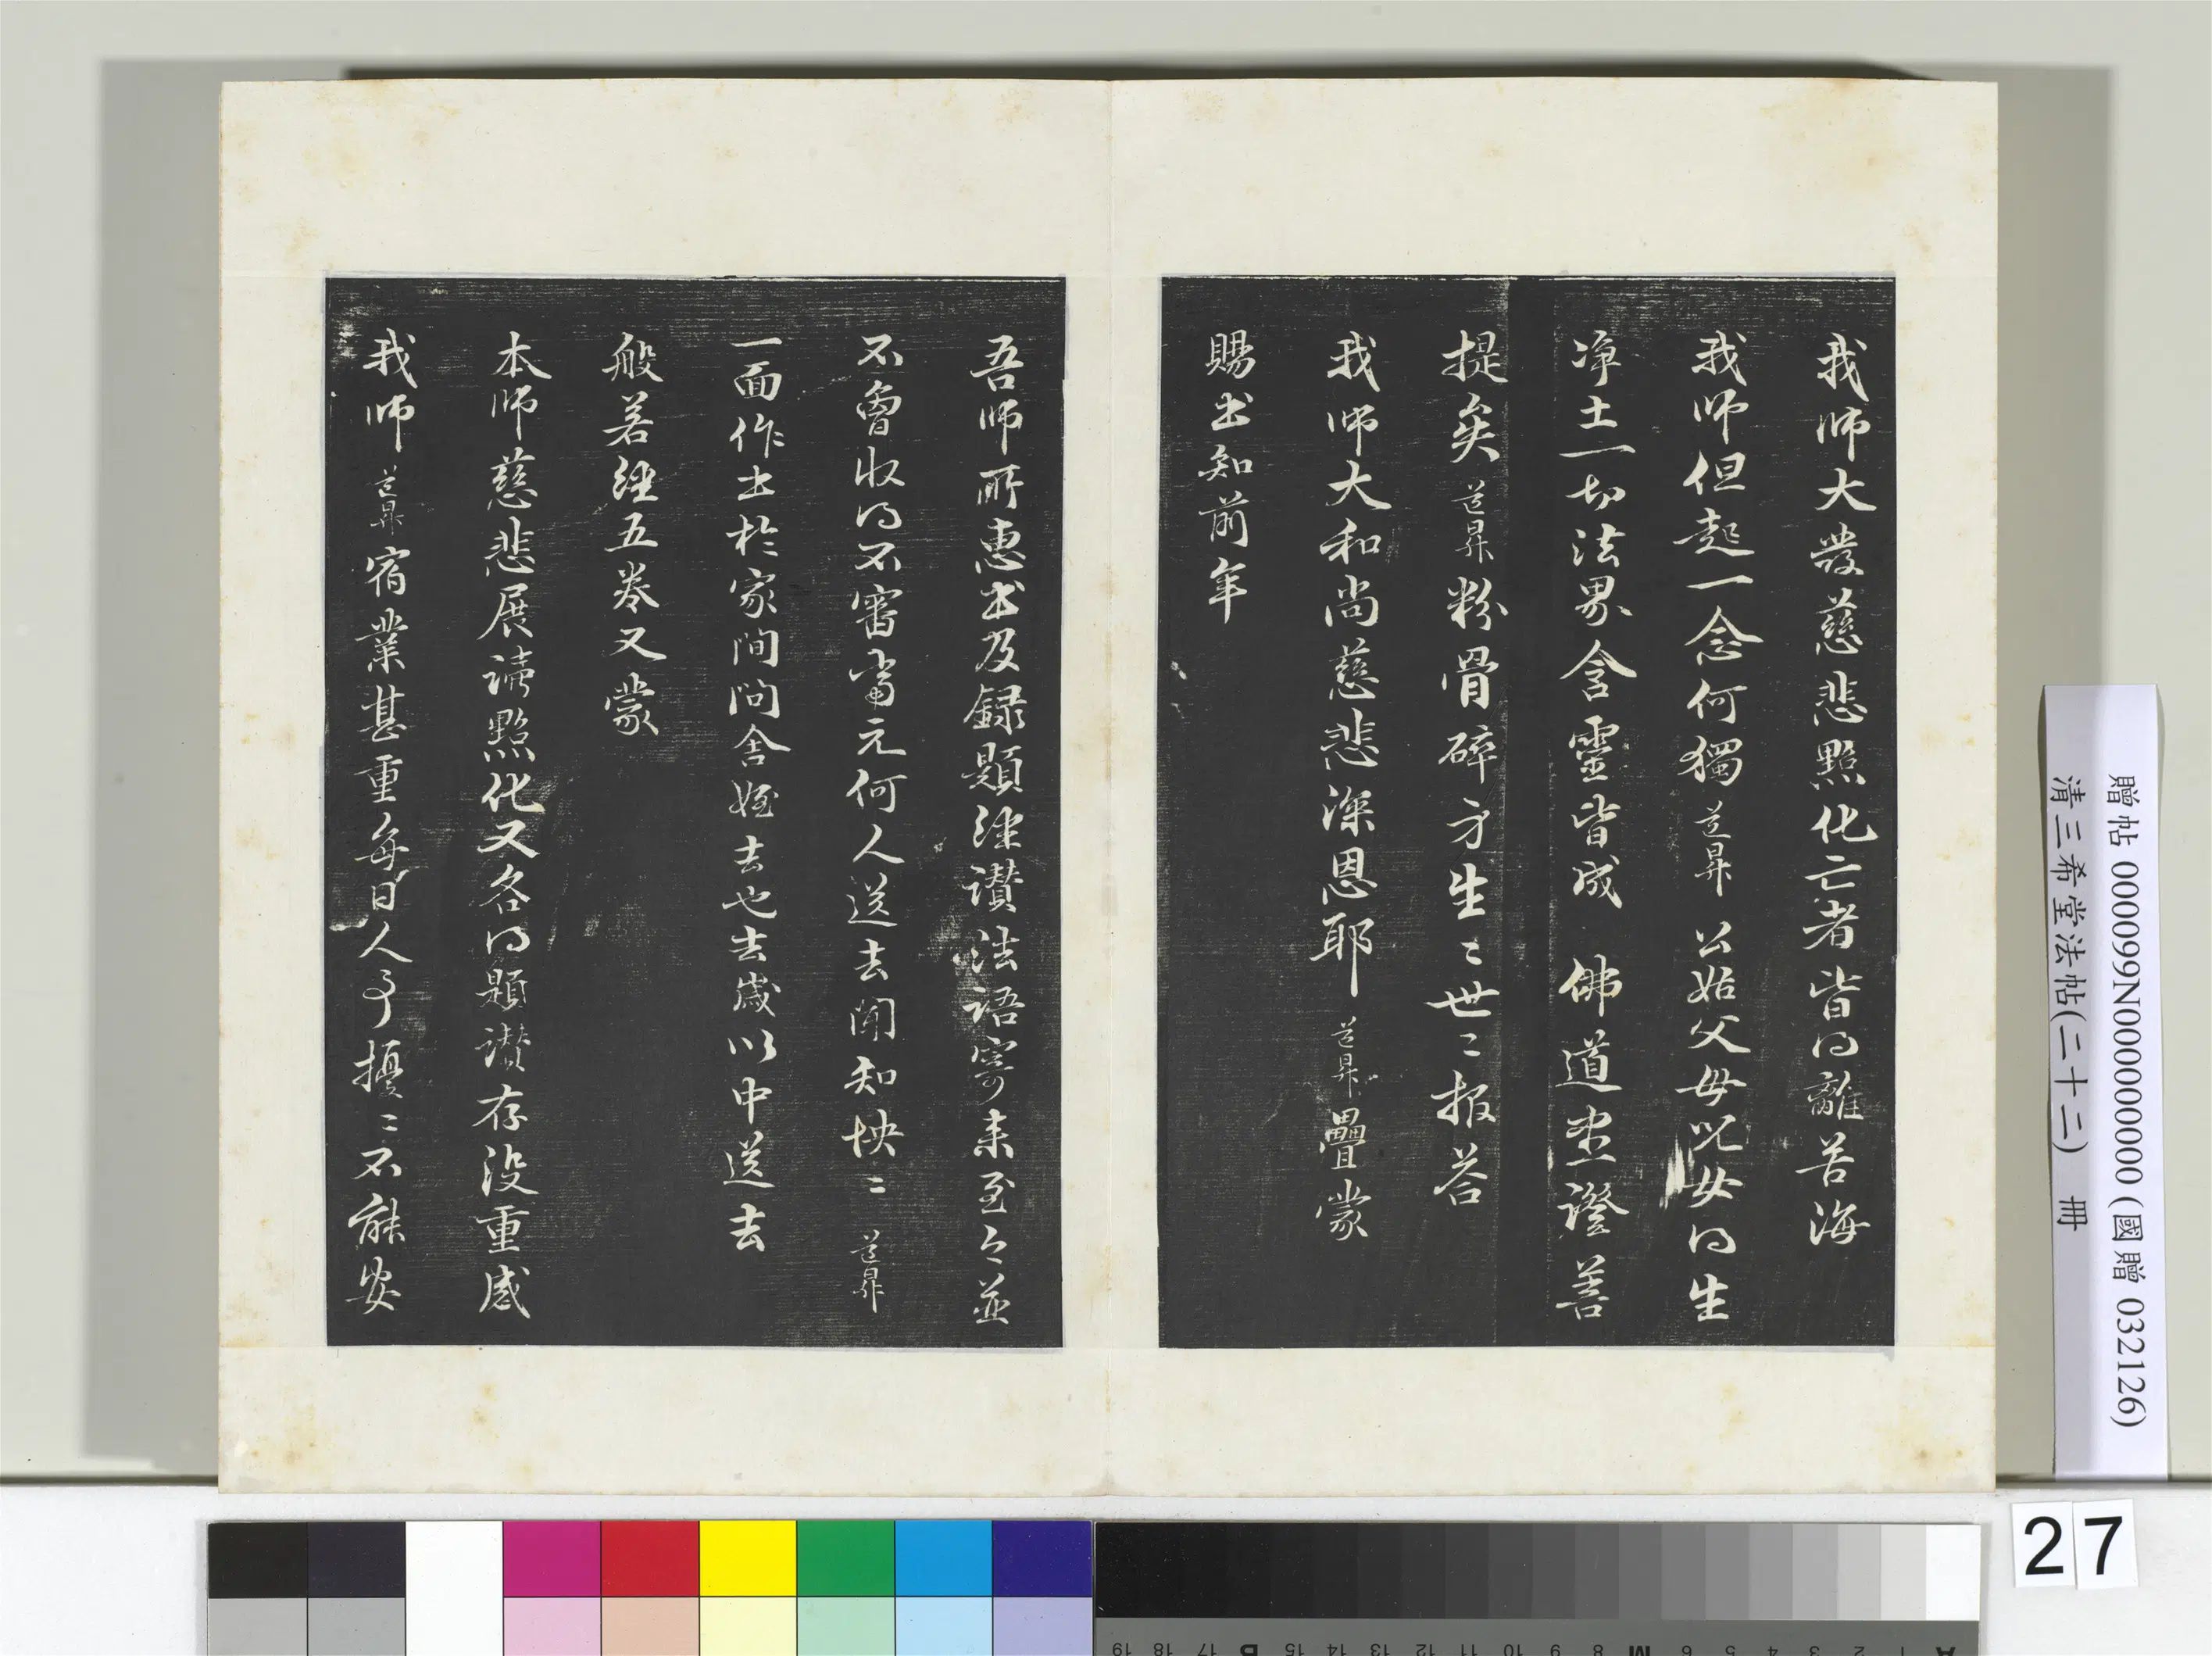 我師大發慈悲點化亡者皆得離苦海
我師但起一念何獨孟頫公姑父母兒女得生
淨土一切法界含靈皆成 佛道盡證菩
提矣道昇粉骨碎身生生世世報答
我師大和尚慈悲深恩耶 道昇疊蒙
賜書知前年
吾師所惠書及錄題經讚法語寄來至今並
不曾收得不審當元何人送去聞知怏怏 道昇
一面作書於家間問舍姪去也去歲以中送去
般若經五卷又蒙
本師慈悲展讀點化又各得題讚存沒重感
我師 道昇宿業甚重每日人事擾擾不能安
贈帖 000099N000000000 (國贈 032126)
清三希堂法帖(二十二) 冊
27